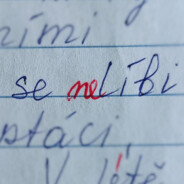 ními
se nelíbí
ptáci,
V létě